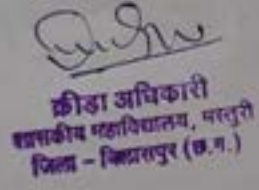 क्रीडा अधिकारी
शासकीय महाविद्यालय, मस्तुरी
जिला - बिलासपुर (छ.ग.)